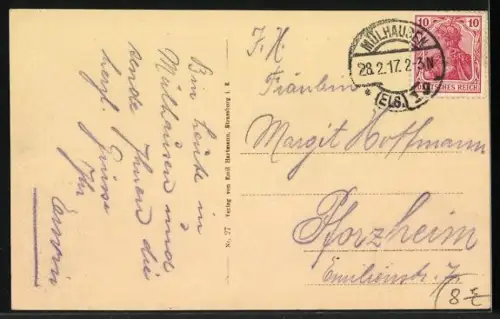 Bin heute in
Mülhausen und
sende Ihnen die
herzl. Grüsse
Ihr
Erwin
Nr. 27 Verlag von Emil Hartmann, Strassburg i. E.
F. H.
Fräulein
Margit Hoffmann
Pforzheim
Emilienstr.
MÜLHAUSEN
28.2.17.2-3N
(ELS.)
10 10
DEUTSCHES REICH
8